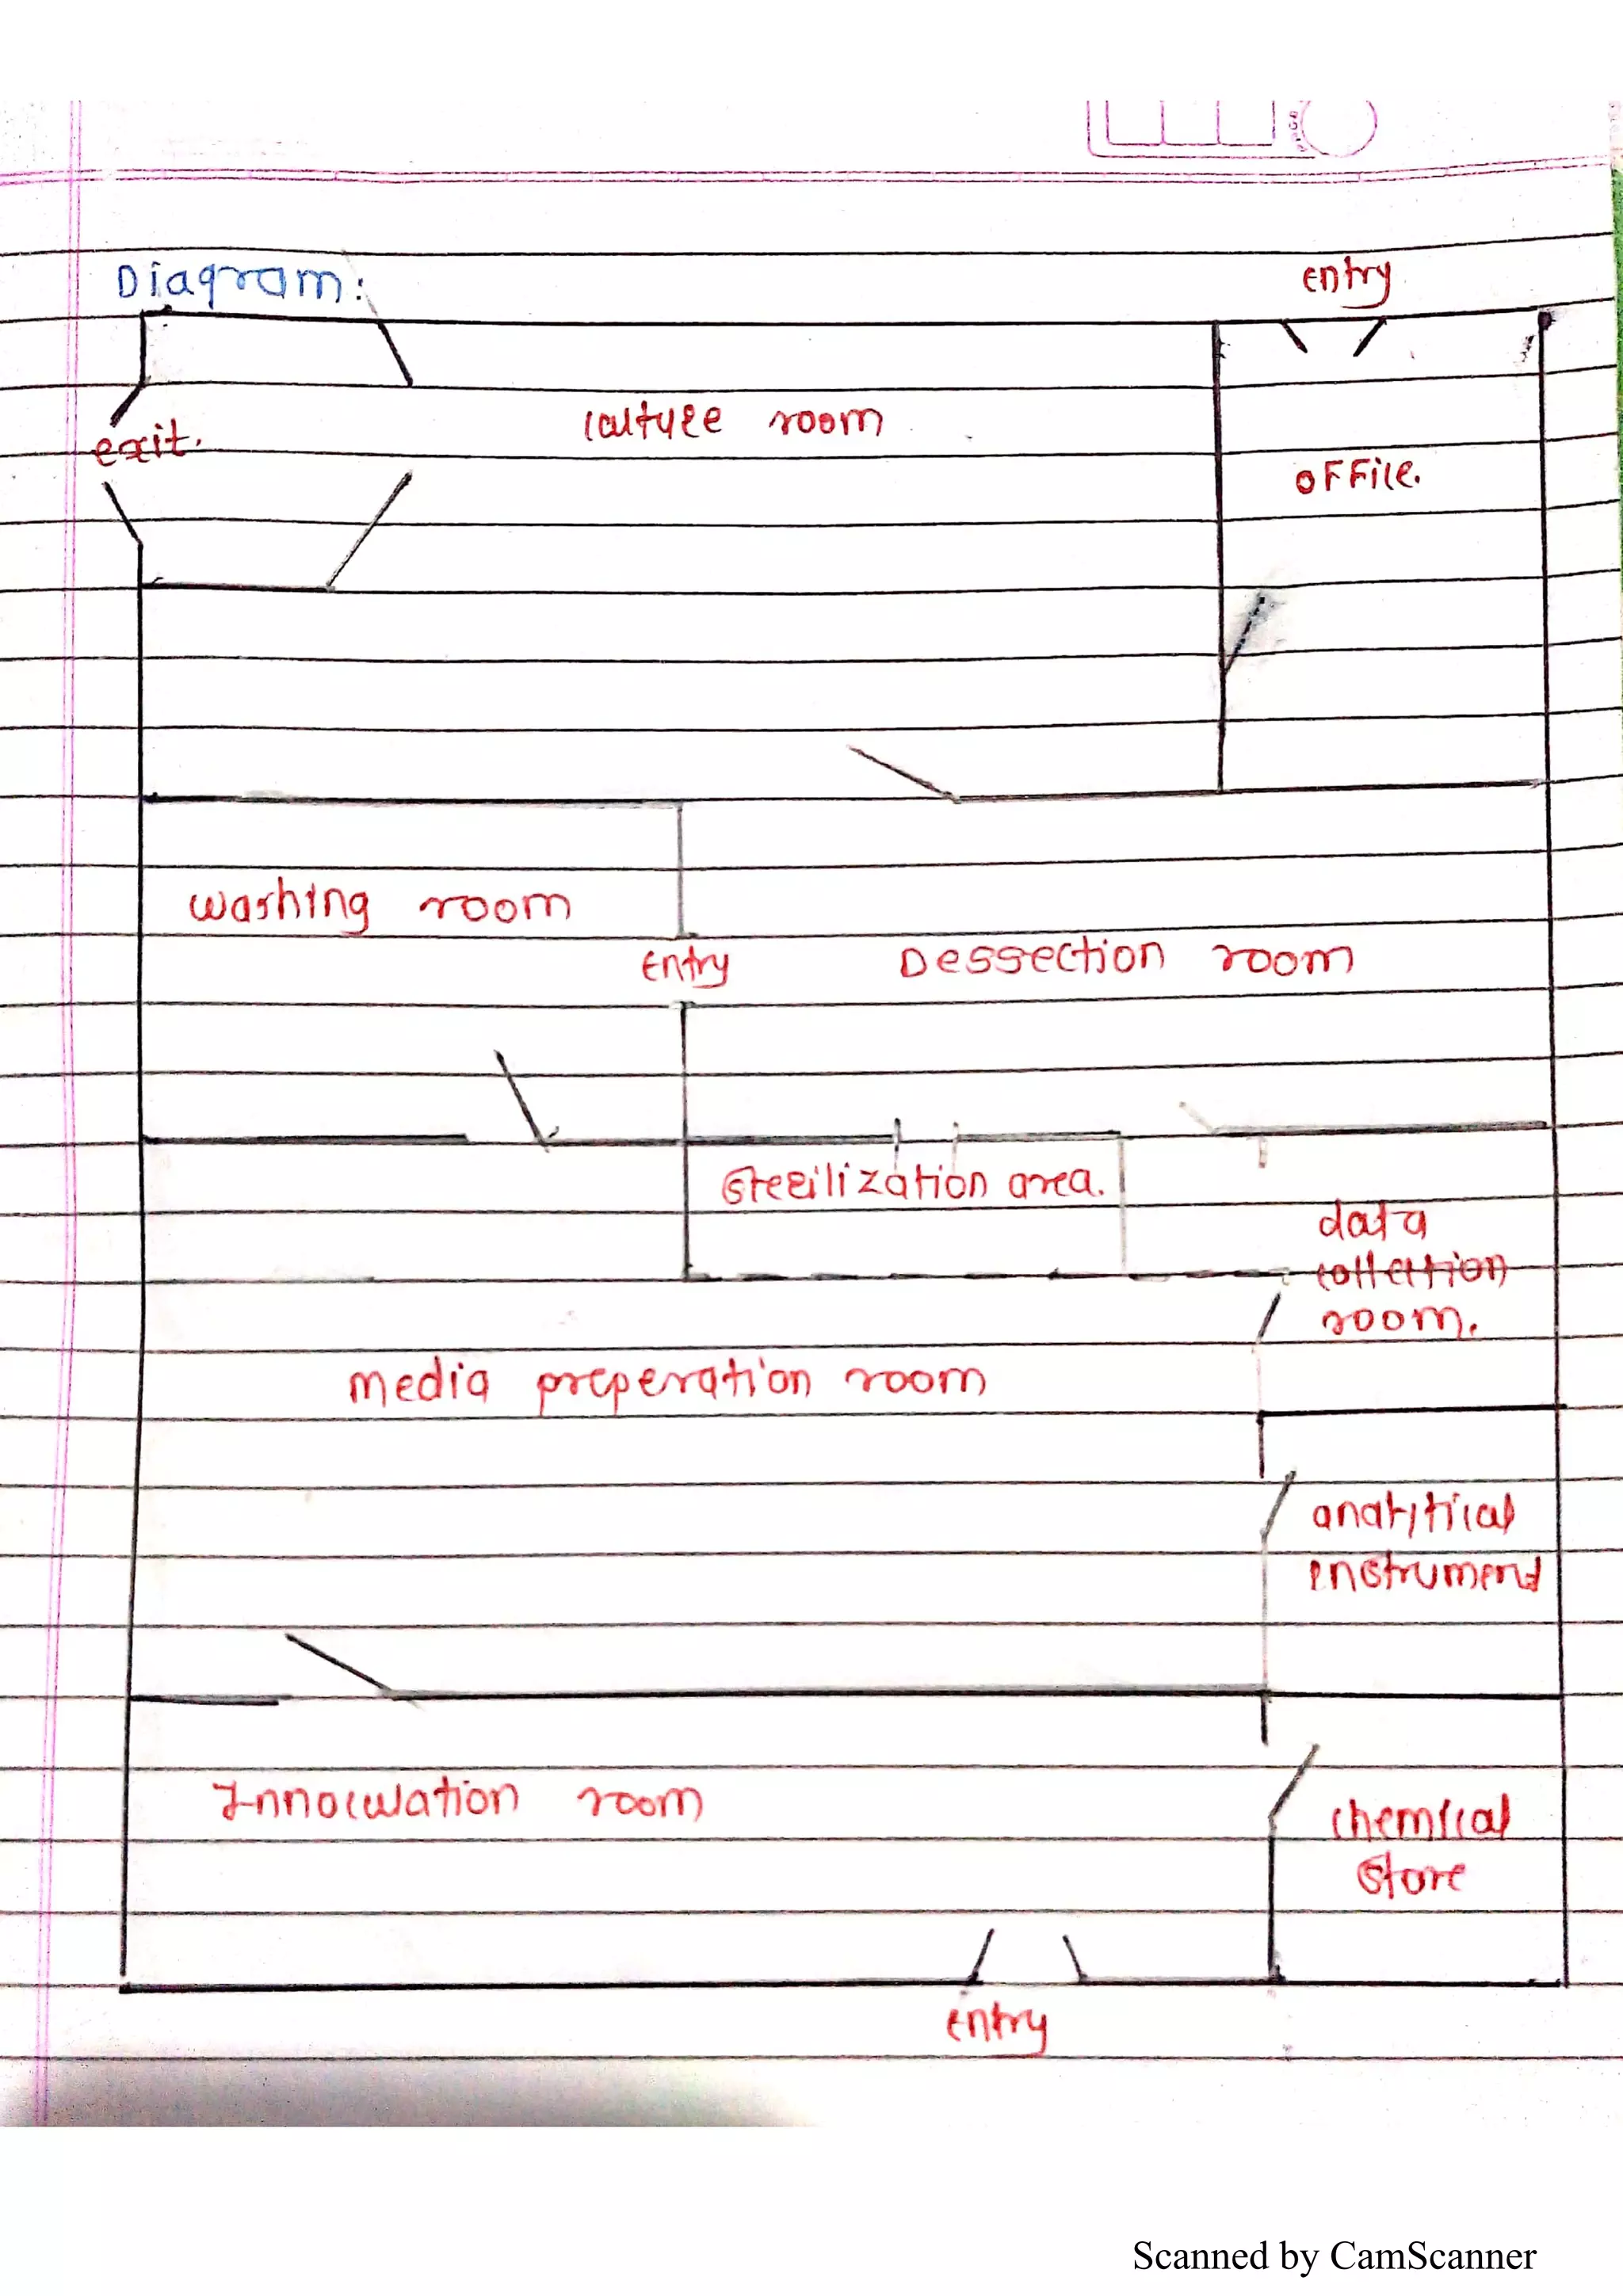 Diagram:
entry
culture room
exit.
office.
washing room
entry
Dessection room
sterilization area.
data
collection
room.
media preperation room
analytical
instrument
Innoculation room
chemical
store
entry
Scanned by CamScanner